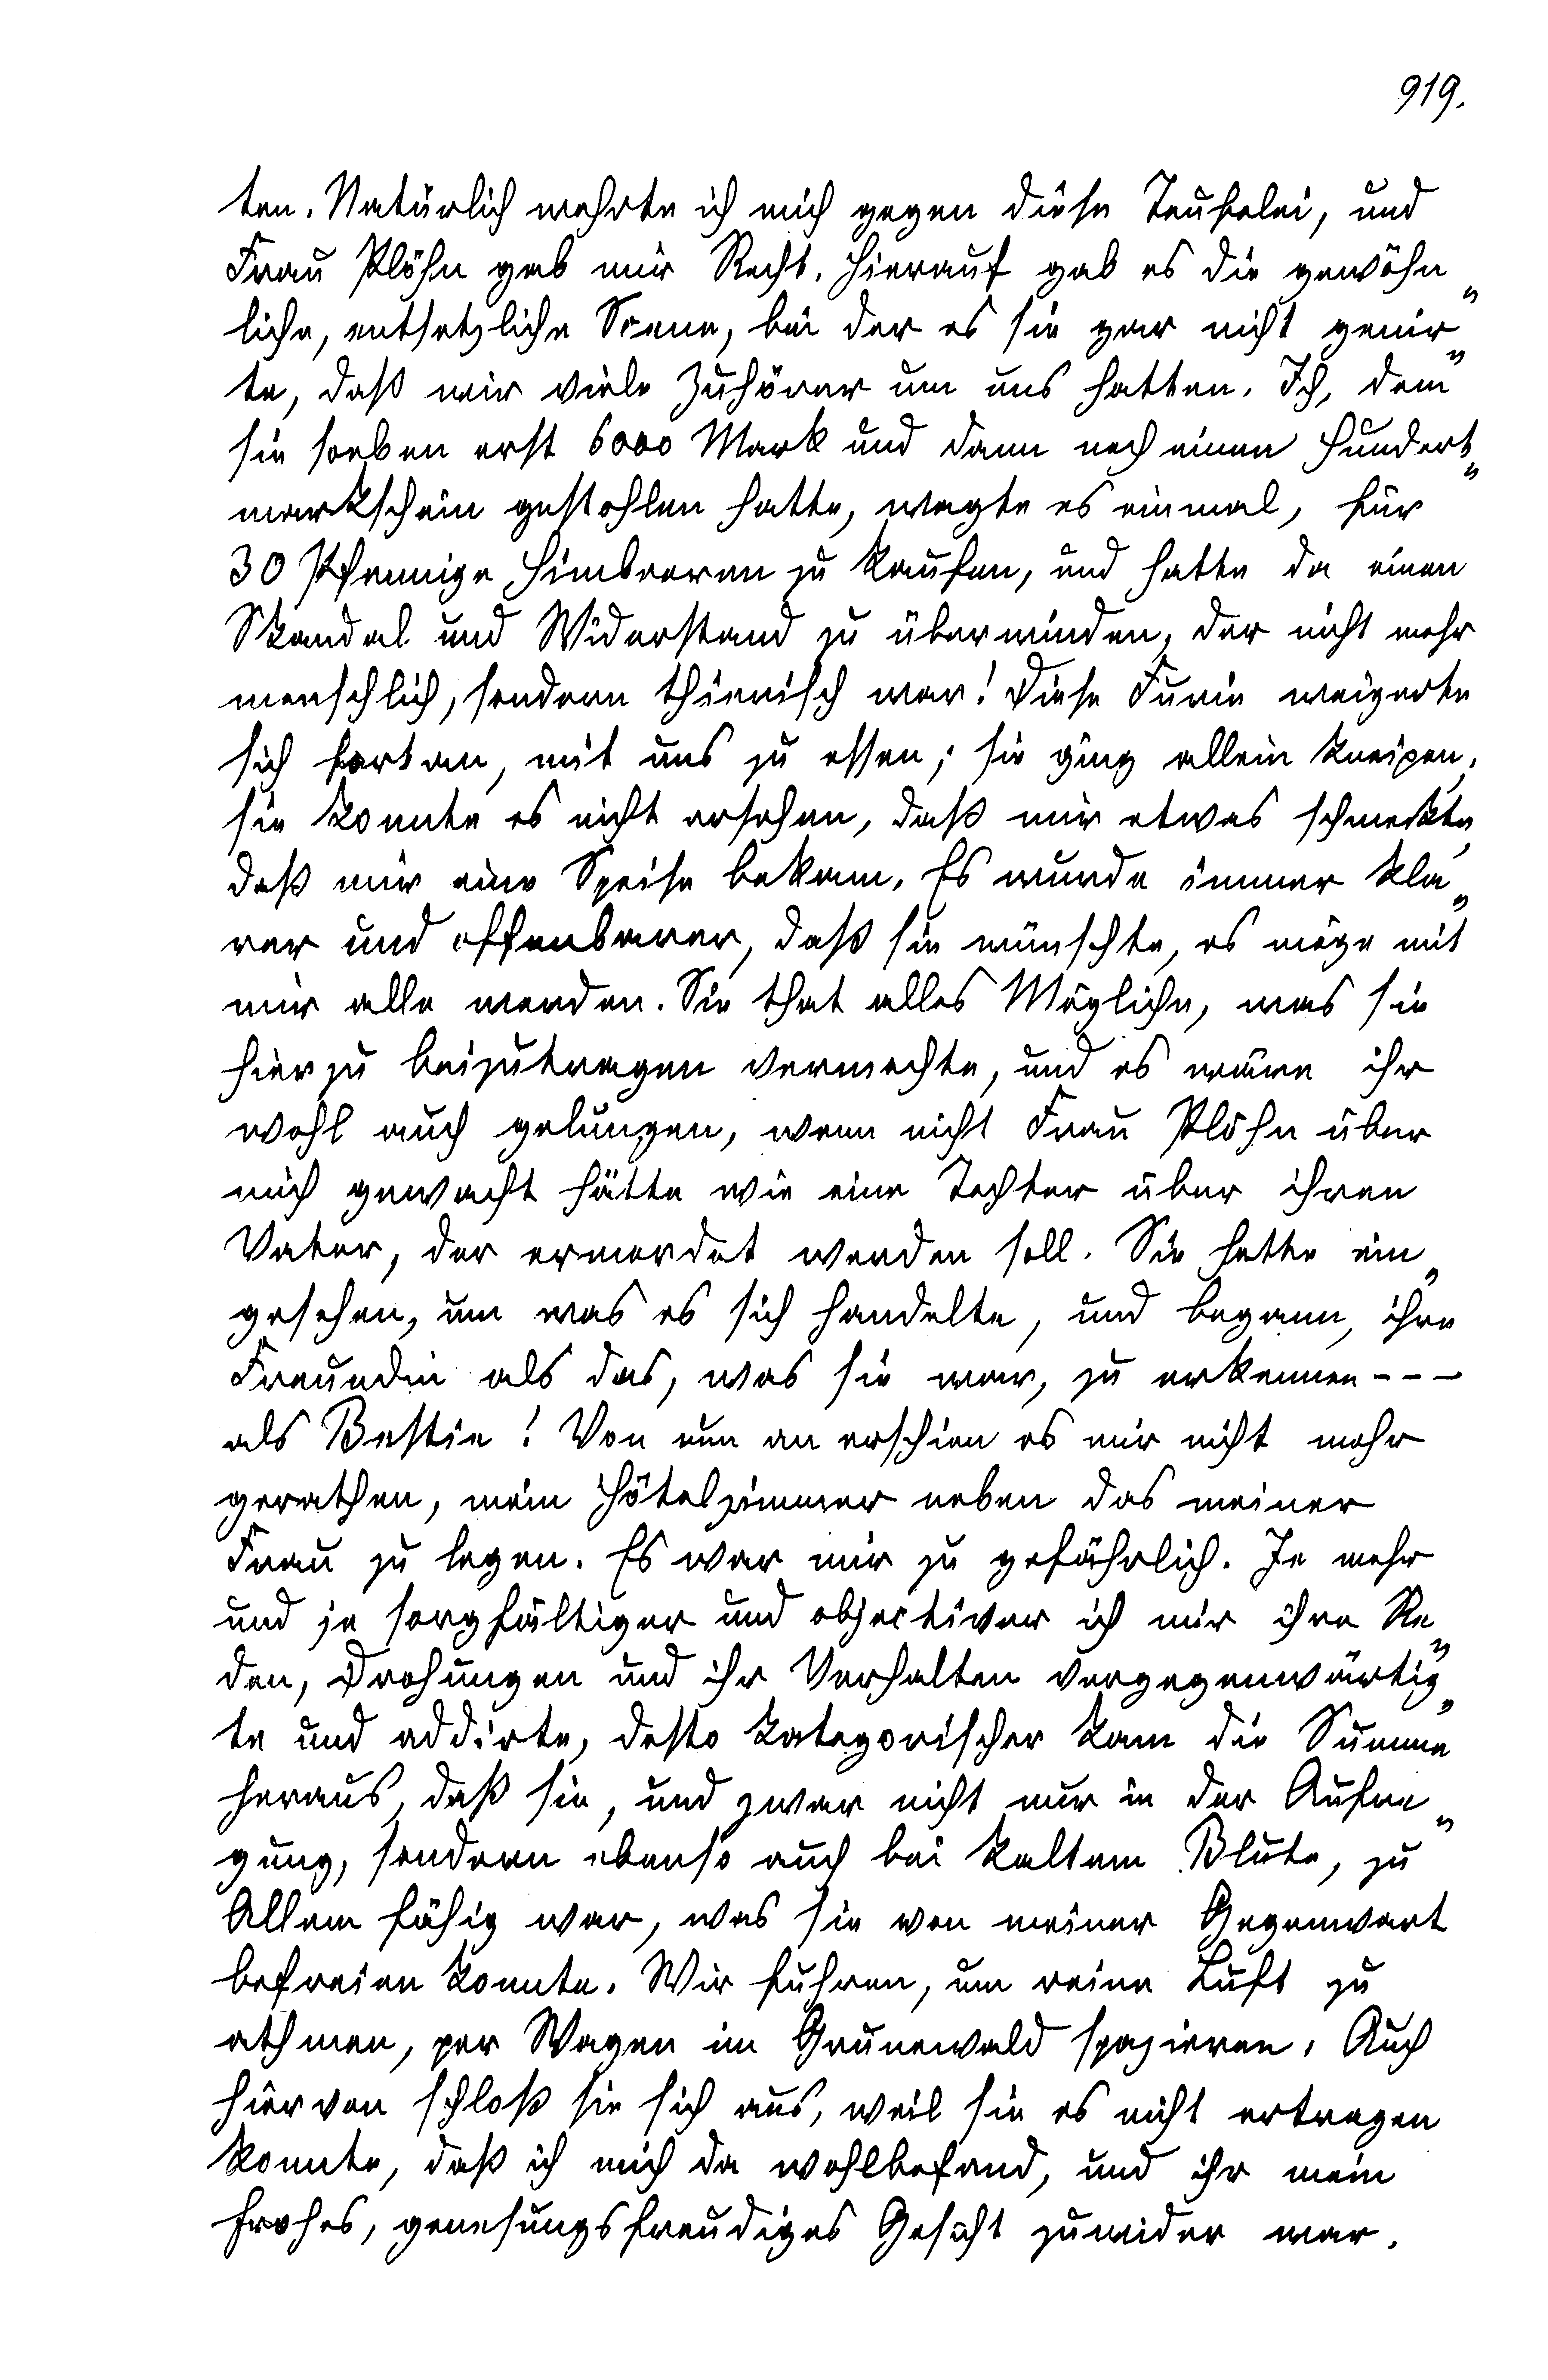 919.
ten. Natürlich wehrte ich mich gegen diese Teufelei, und
Frau Plöhn gab mir Recht. Hierauf gab es die gewöhn„
liche, entsetzliche Scene, bei der es sie gar nicht genir„
te, daß wir viele Zuhörer um uns hatten. Ich, dem
sie soeben erst 6000 Mark und dann noch einen Hundert„
markschein gestohlen hatte, wagte es einmal, für
30 Pfennige Himbeeren zu kaufen, und hatte da einen
Skandal und Widerstand zu überwinden, der nicht mehr
menschlich, sondern thierisch war! Diese Furie weigerte
sich fortan, mit uns zu essen; sie ging allein kneipen,
sie konnte es nicht ersehen, daß mir etwas schmeckte,
daß mir eine Speise bekam. Es wurde immer kla„
rer und offenbarer, daß sie wünschte, es möge mit
mir alle werden. Sie that alles Mögliche, was sie
hierzu beizutragen vermochte, und es wäre ihr
wohl auch gelungen, wenn nicht Frau Plöhn über
mich gewacht hätte wie eine Tochter über ihren
Vater, der ermordet werden soll. Sie hatte ein„
gesehen, um was es sich handelte, und begann, ihre
Freundin als das, was sie war, zu erkennen - - -
als Bestie! Von nun an erschien es mir nicht mehr
gerathen, mein Hôtelzimmer neben das meiner
Frau zu legen. Es war mir zu gefährlich. Je mehr
und je sorgfältiger und objectiver ich mir ihre Re„
den, Drohungen und ihr Verhalten vergegenwärtig„
te und addirte, desto kategorischer kam die Summe
heraus, daß sie, und zwar nicht nur in der Aufre„
gung, sondern ebenso auch bei kaltem Blute, zu
Allem fähig war, was sie von meiner Gegenwart
befreien konnte. Wir fuhren, um reine Luft zu
athmen, per Wagen im Grunewald spazieren. Auch
hiervon schloß sie sich aus, weil sie es nicht ertragen
konnte, daß ich mich da wohlbefand, und ihr mein
frohes, genesungsfreudiges Gesicht zuwider war.